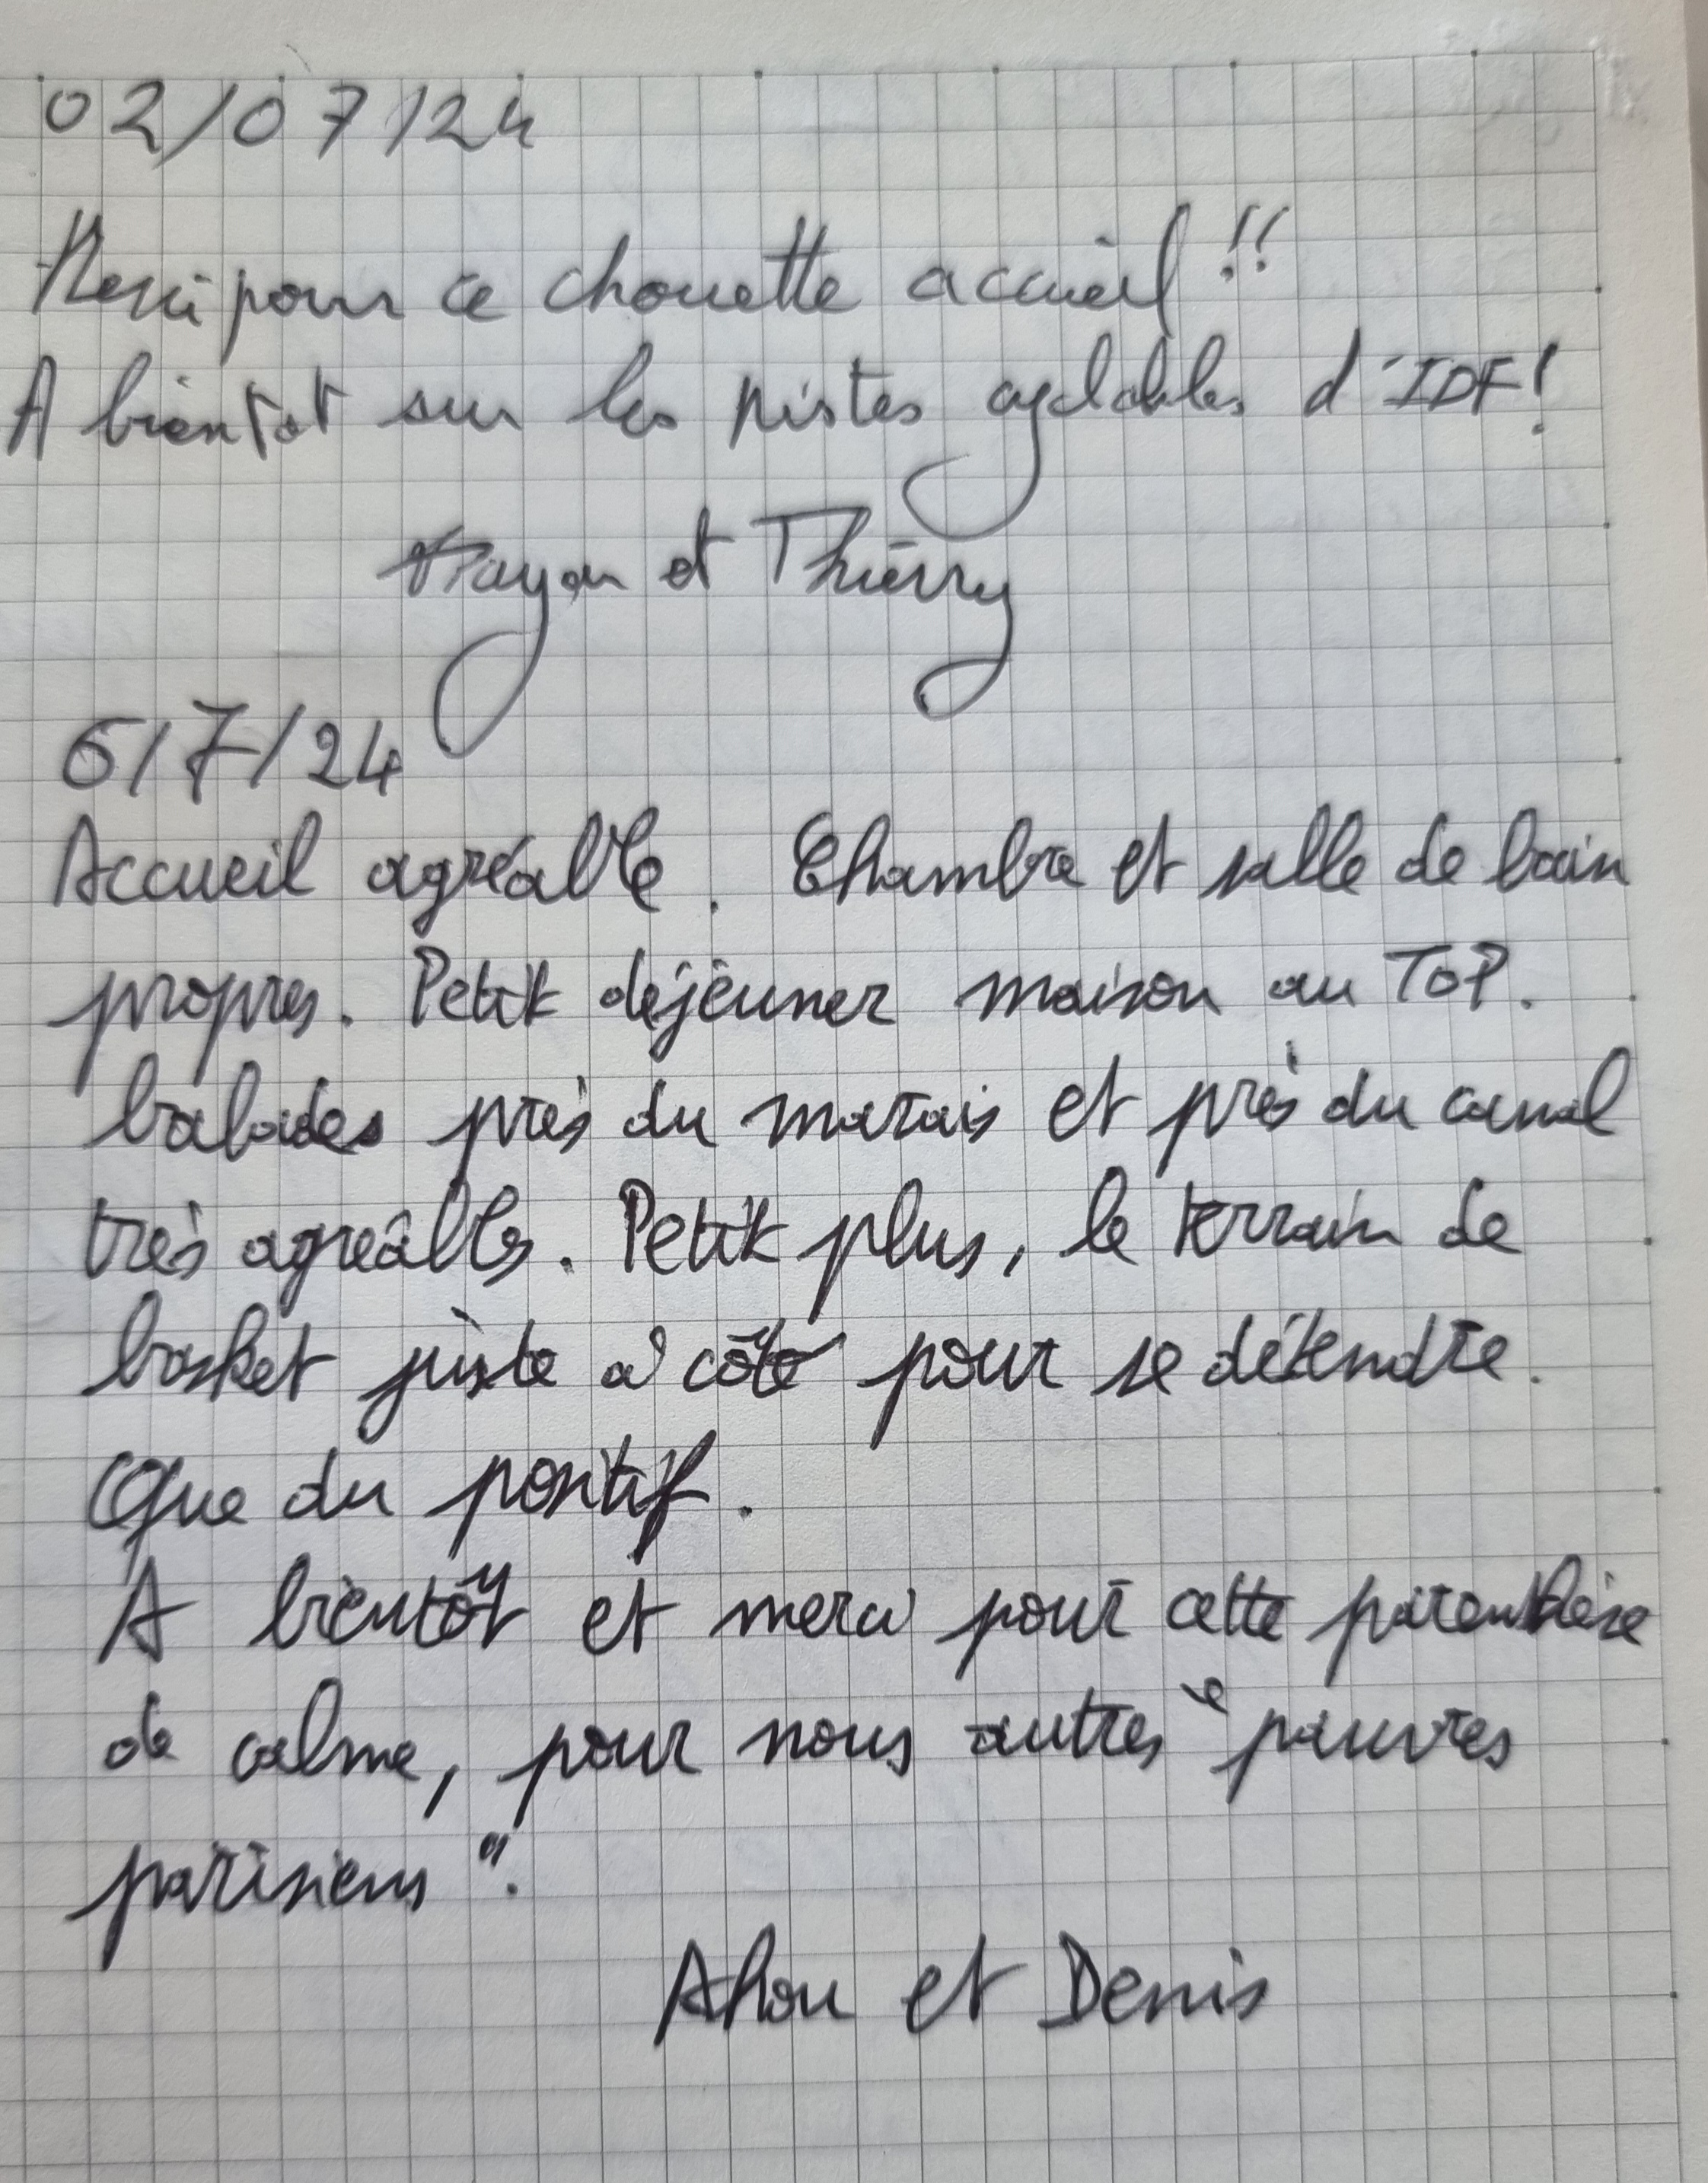 02/07/24
Merci pour ce chouette accueil !!
A bientot sur les pistes cyclables d'IDF!
et Thierry
6/7/24
Accueil agréable. Chambre et salle de bain
propres. Petit dejeuner maison au TOP.
balades près du marais et près du canal
très agréables. Petit plus, le terrain de
basket juste à côté pour se détendre.
Que du positif.
A bientôt et merci pour cette parenthèse
de calme, pour nous autres "pauvres
parisiens".
Ahou et Denis